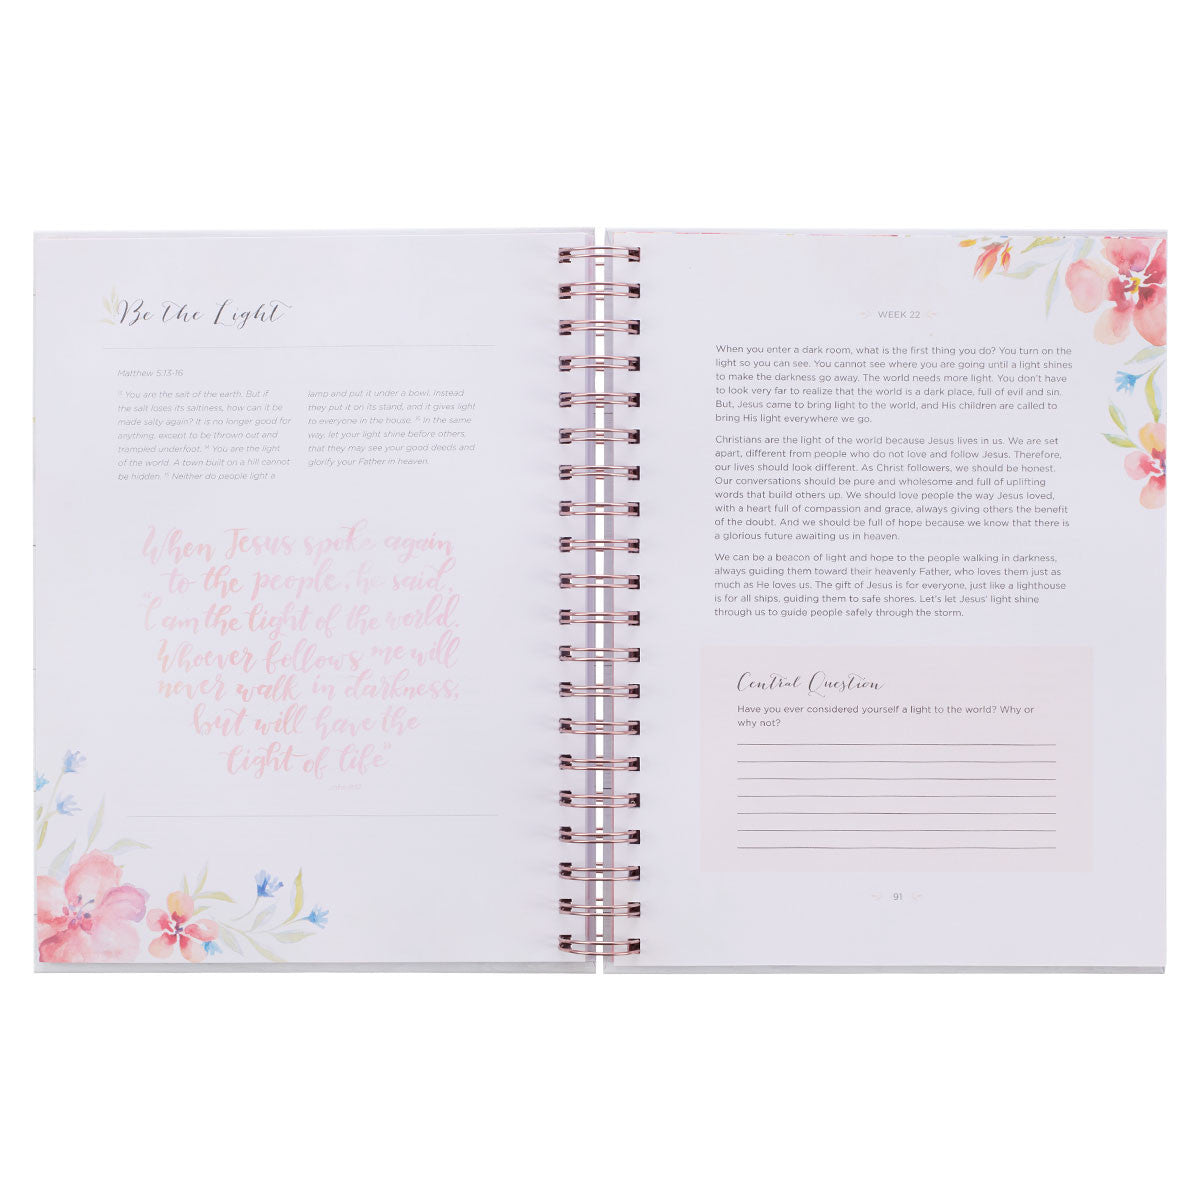 Be the Light
Matthew 5:13-16
13 You are the salt of the earth. But if
the salt loses its saltiness, how can it be
made salty again? It is no longer good for
anything, except to be thrown out and
trampled underfoot. 14 You are the light
of the world. A town built on a hill cannot
be hidden. 15 Neither do people light a
lamp and put it under a bowl. Instead
they put it on its stand, and it gives light
to everyone in the house. 16 In the same
way, let your light shine before others,
that they may see your good deeds and
glorify your Father in heaven.
When Jesus spoke again
to the people, he said,
"I am the light of the world.
Whoever follows me will
never walk in darkness,
but will have the
light of life"
John 8:12
WEEK 22
When you enter a dark room, what is the first thing you do? You turn on the
light so you can see. You cannot see where you are going until a light shines
to make the darkness go away. The world needs more light. You don't have
to look very far to realize that the world is a dark place, full of evil and sin.
But, Jesus came to bring light to the world, and His children are called to
bring His light everywhere we go.
Christians are the light of the world because Jesus lives in us. We are set
apart, different from people who do not love and follow Jesus. Therefore,
our lives should look different. As Christ followers, we should be honest.
Our conversations should be pure and wholesome and full of uplifting
words that build others up. We should love people the way Jesus loved,
with a heart full of compassion and grace, always giving others the benefit
of the doubt. And we should be full of hope because we know that there is
a glorious future awaiting us in heaven.
We can be a beacon of light and hope to the people walking in darkness,
always guiding them toward their heavenly Father, who loves them just as
much as He loves us. The gift of Jesus is for everyone, just like a lighthouse
is for all ships, guiding them to safe shores. Let's let Jesus' light shine
through us to guide people safely through the storm.
Central Question
Have you ever considered yourself a light to the world? Why or
why not?
91